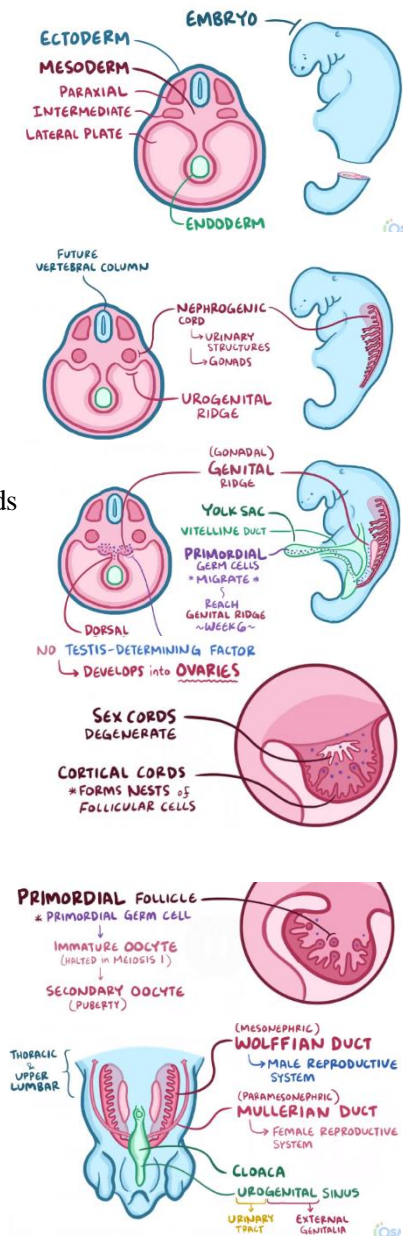 EMBRYO
ECTODERM
MESODERM
PARAXIAL
INTERMEDIATE
LATERAL PLATE
ENDODERM
FUTURE
VERTEBRAL COLUMN
NEPHROGENIC
CORD
↳ URINARY
STRUCTURES
↳ GONADS
UROGENITAL
RIDGE
ds
(GONADAL)
GENITAL
RIDGE
YOLK SAC
VITELLINE DUCT
PRIMORDIAL
GERM CELLS
* MIGRATE *
REACH
GENITAL RIDGE
~WEEK 6~
DORSAL
NO TESTIS-DETERMINING FACTOR
↳ DEVELOPS into OVARIES
SEX CORDS
DEGENERATE
CORTICAL CORDS
* FORMS NESTS of
FOLLICULAR CELLS
PRIMORDIAL FOLLICLE
* PRIMORDIAL GERM CELL
↓
IMMATURE OOCYTE
(HALTED IN MEIOSIS I)
↓
SECONDARY OOCYTE
(PUBERTY)
THORACIC
& UPPER
LUMBAR
(MESONEPHRIC)
WOLFFIAN DUCT
↳ MALE REPRODUCTIVE
SYSTEM
(PARAMESONEPHRIC)
MULLERIAN DUCT
↳ FEMALE REPRODUCTIVE
SYSTEM
CLOACA
UROGENITAL SINUS
URINARY
TRACT
EXTERNAL
GENITALIA